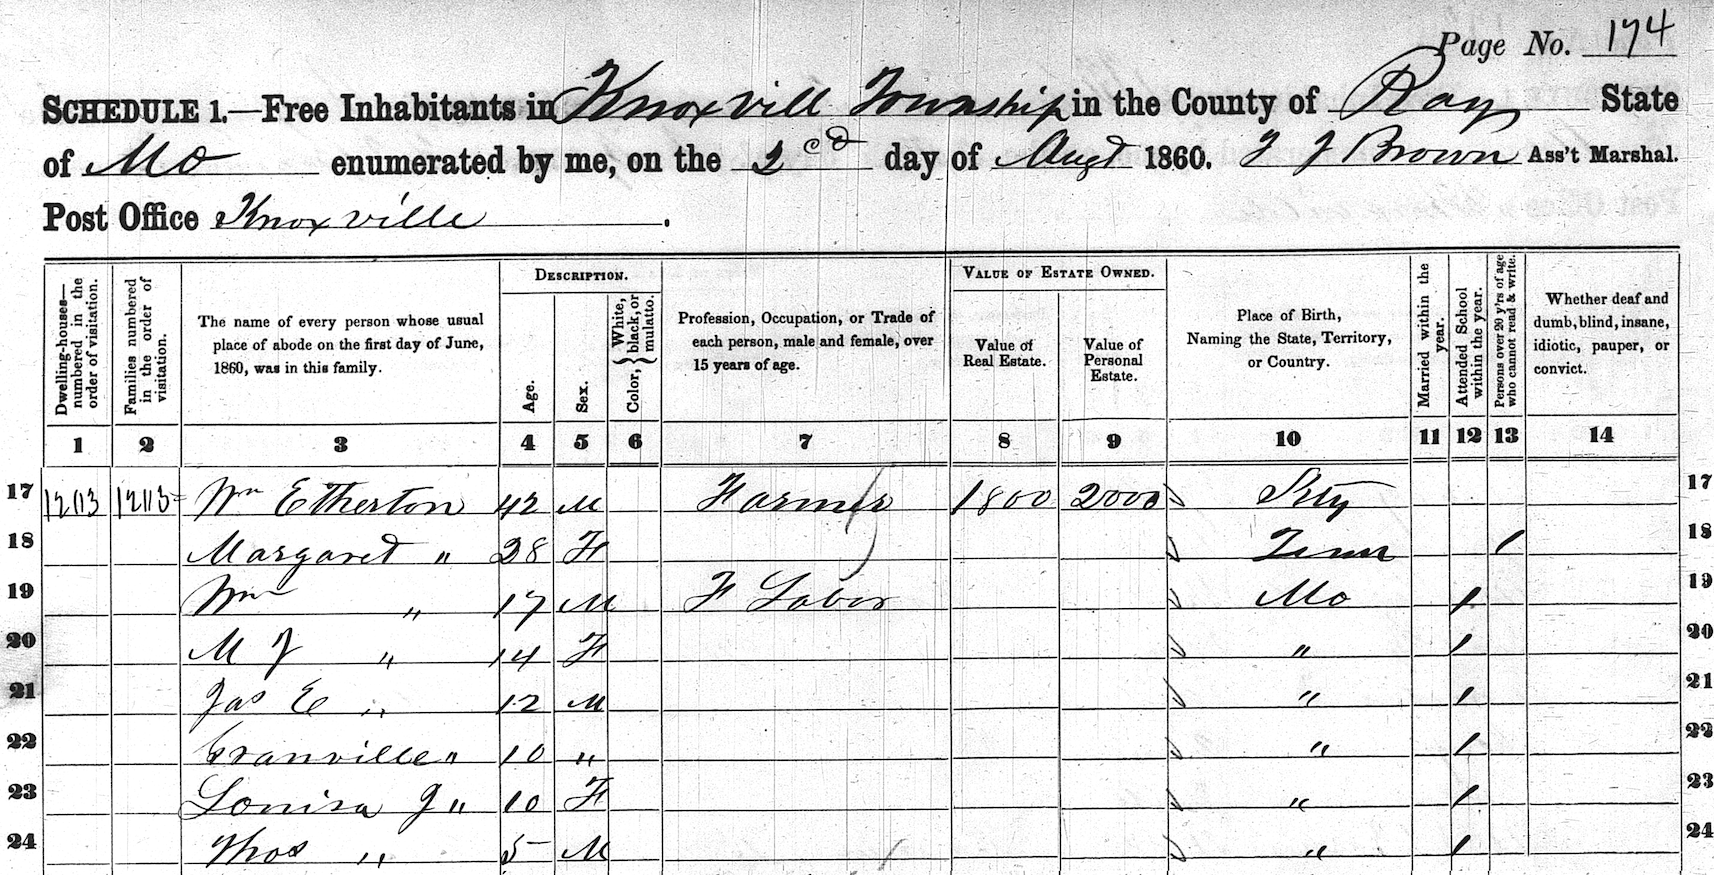 Page No. 174
SCHEDULE 1.—Free Inhabitants in Knoxvill Township in the County of Ray State
of Mo enumerated by me, on the 2cd day of Augt 1860. T J Brown Ass't Marshal.
Post Office Knoxville.
Dwelling-houses—numbered in the order of visitation.
Families numbered in the order of visitation.
The name of every person whose usual place of abode on the first day of June, 1860, was in this family.
DESCRIPTION.
Age.
Sex.
Color, { White, black, or mulatto.
Profession, Occupation, or Trade of each person, male and female, over 15 years of age.
VALUE OF ESTATE OWNED.
Value of Real Estate.
Value of Personal Estate.
Place of Birth, Naming the State, Territory, or Country.
Married within the year.
Attended School within the year.
Persons over 20 y'rs of age who cannot read & write.
Whether deaf and dumb, blind, insane, idiotic, pauper, or convict.
1 2 3 4 5 6 7 8 9 10 11 12 13 14
17 Wm Etherton 42 M Farmer 1800 2000 Kty 17
18 Margaret " 38 F Tenn / 18
19 Wm " 17 M F Labor Mo / 19
20 M J " 14 F " / 20
21 Jas E " 12 M " / 21
22 Granville " 10 " " / 22
23 Louisa J " 10 F " / 23
24 Thos " 5 M " / 24